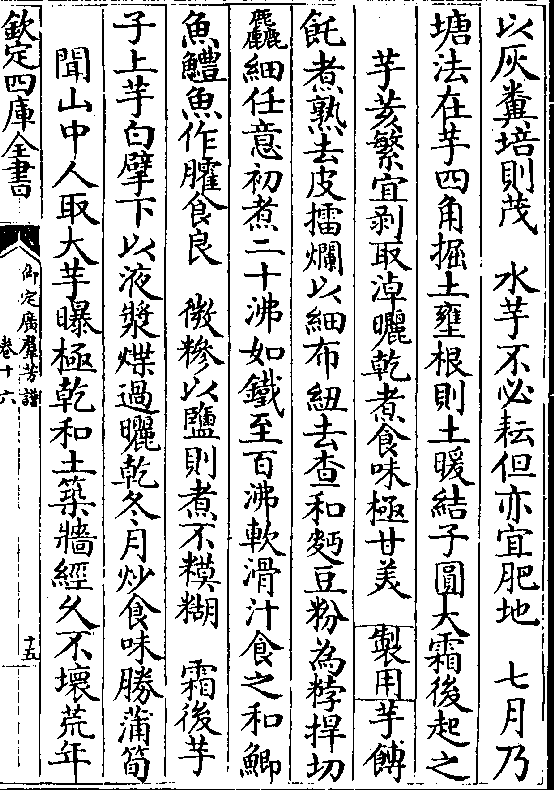 以灰糞培則茂　水芋不必耘但亦宜肥地　七月乃
塘法在芋四角掘土壅根則土暖結子圓大霜後起之
芋荄繁宜剥取淖曬乾煮食味極甘美　製用芋餺
飥煮熟去皮擂爛以細布紐去查和麫豆粉為㭳捍切
麤細任意初煮二十沸如鐵至百沸軟滑汁食之和鯽
魚鱧魚作臛食良　微糝以鹽則煮不糢糊　霜後芋
子上芋白擘下以液漿煠過曬乾冬月炒食味勝蒲筍
聞山中人取大芋曝極乾和土築牆經久不壞荒年
欽定四庫全書
御定廣羣芳譜
卷十六
十五